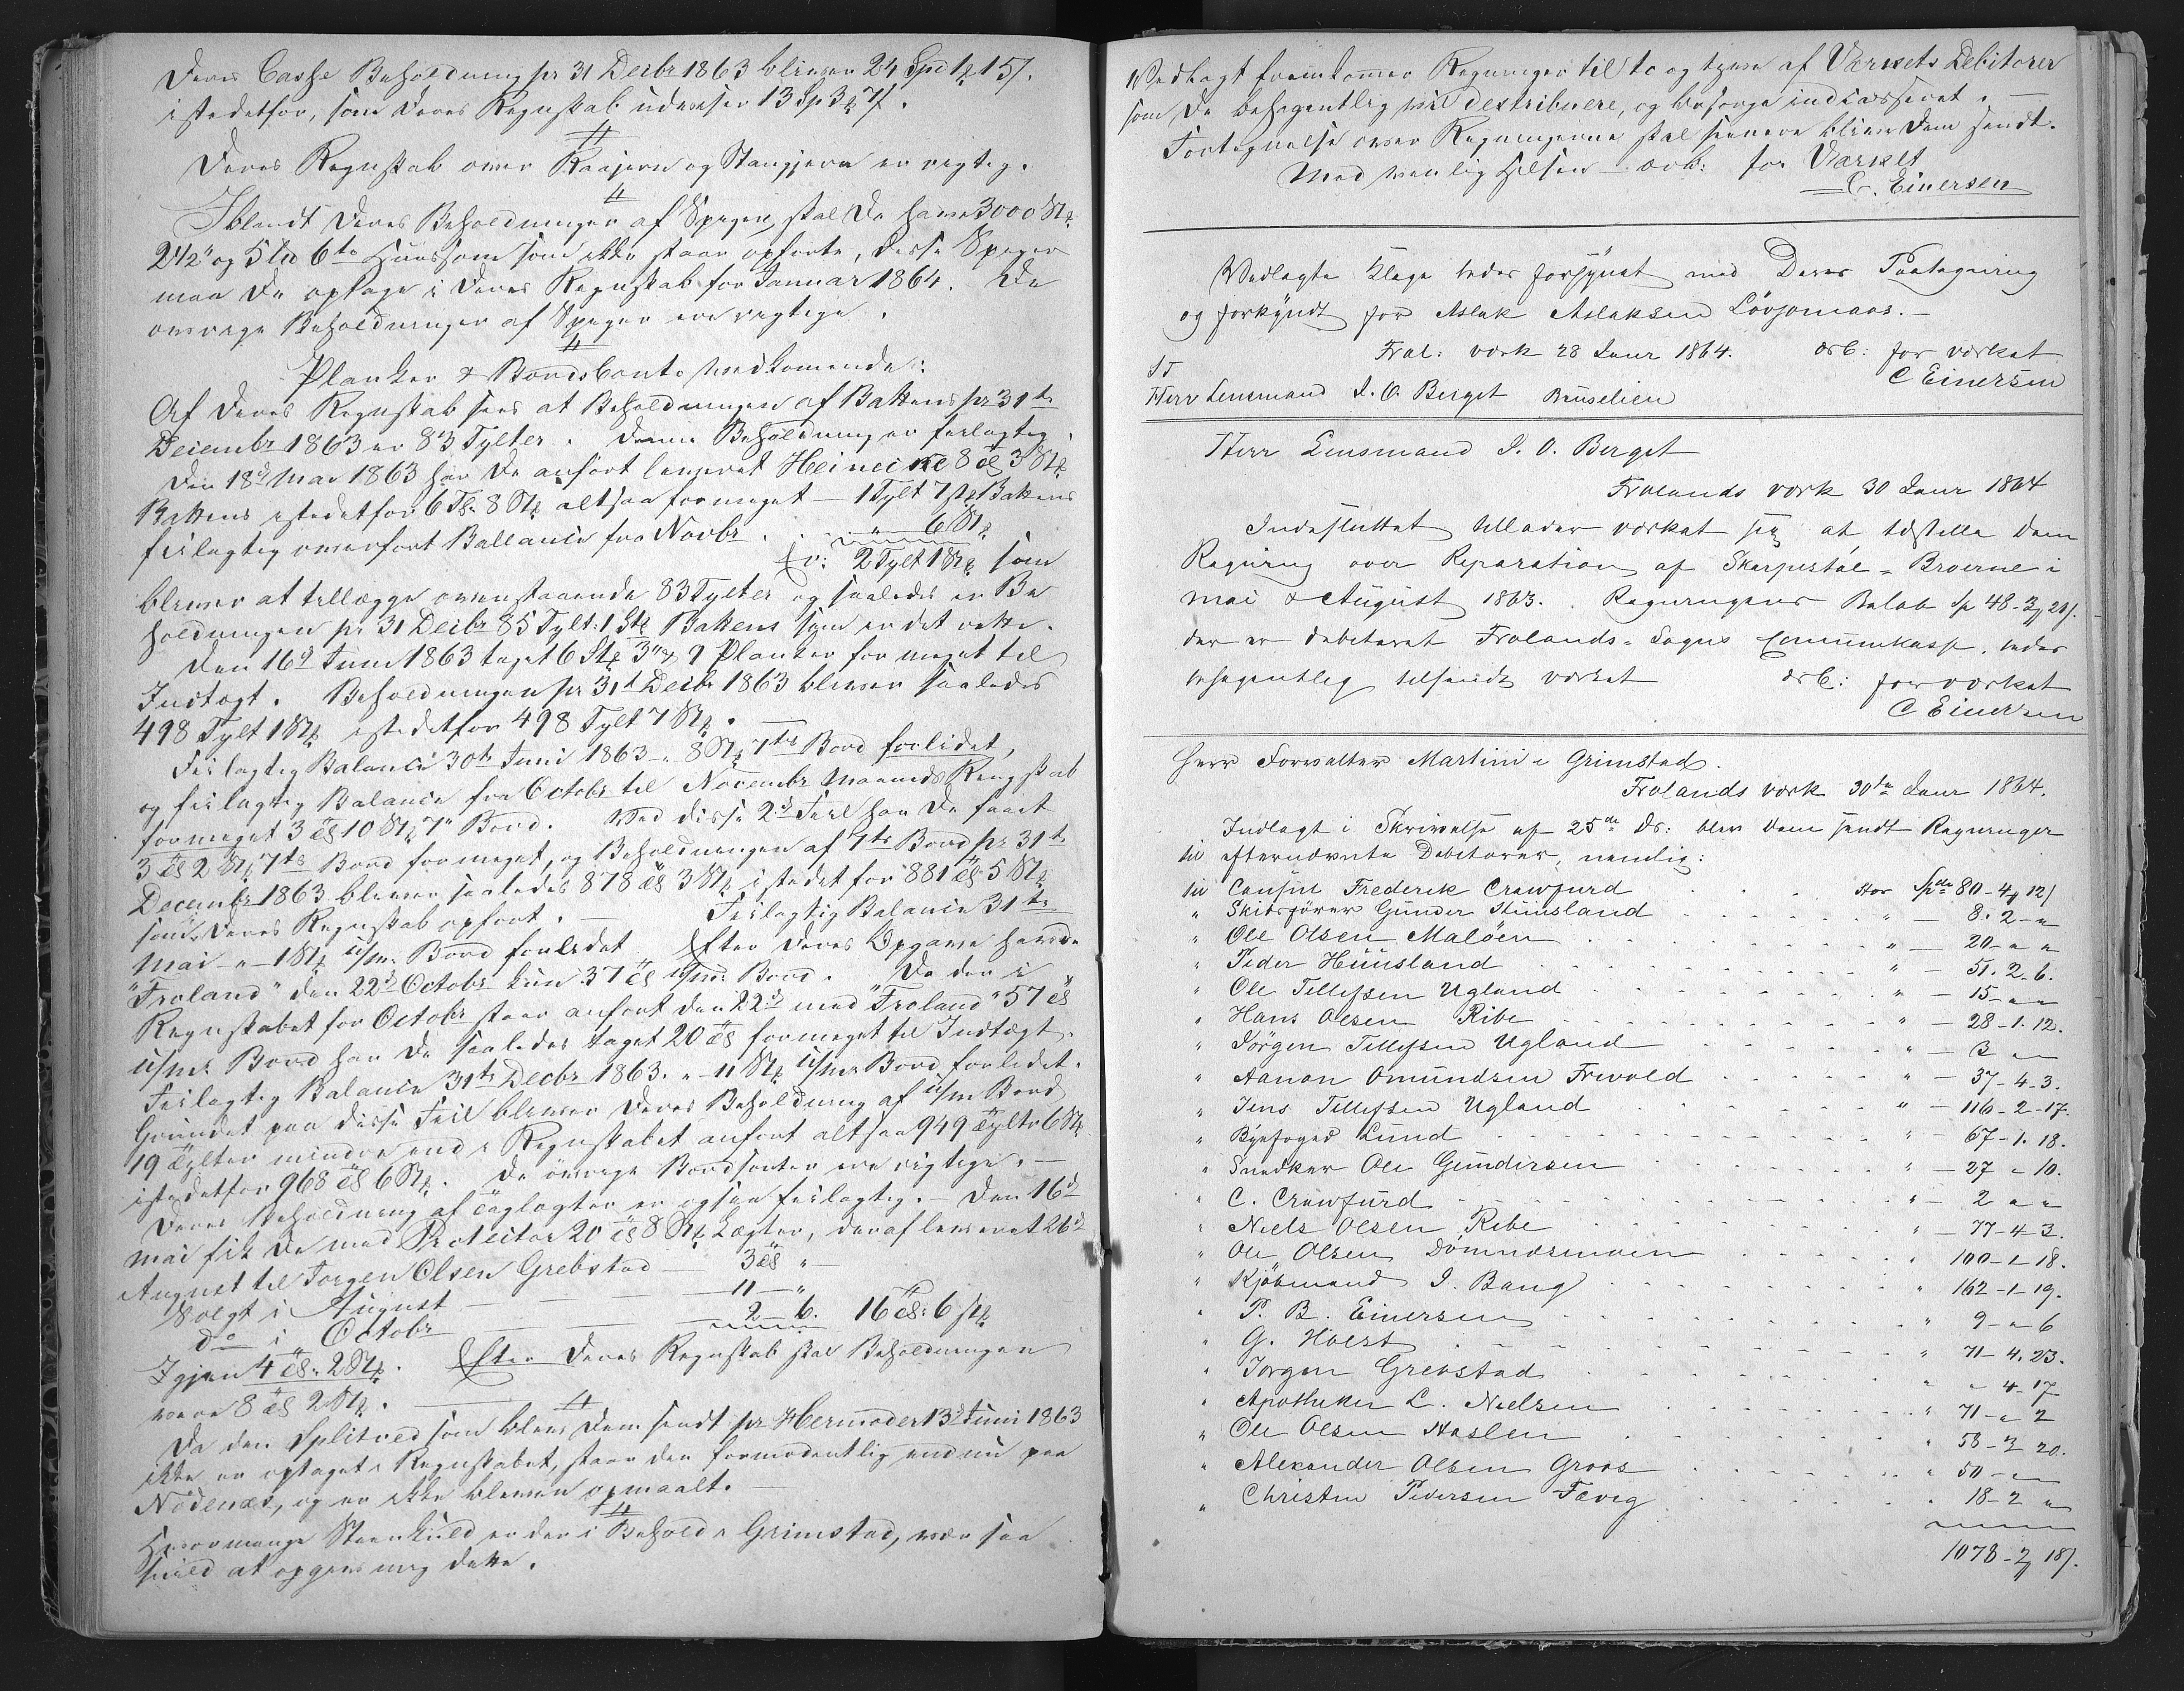 Deres Casse Beholdning pr 31 Decbr 1863 bliver 24 Spd 1 ƶ 15 /.
istedetfor, som Deres Regnskab udviser 13 Sp 3 ƶ 7 /.
Deres Regnskab over Raajern og Stangjern er rigtig.
Iblandt Deres Beholdninger af Speger, skal De have 3000 Stk
2 1/2" og 5 Td 6te som ikke staar opførte, disse Speger
maa De optage i Deres Regnskab for Januar 1864. De
øvrige Beholdninger af Speger ere rigtige.
Planker & Bordsconto vedkomende:
Af Deres Regnskab sees at Beholdningen af Battens pr 31te
Decembr 1863 er 83 Tylter. Denne Beholdning er feilagtig.
Den 18d Mai 1863 har De anført leveret Heincike 8 Tl 3 Stk
Battens istedetfor 6 Tl. 8 Stk altsaa formeget — 1 Tylt 7 Stk Battens
feilagtig overført Ballance fra Novbr . . " 6 Stk
Er: 2 Tylt 1 Stk som
bliver at tillægge ovenstaaende 83 Tylter og saaledes er Be
holdningen pr 31 Decbr 85 Tylt: 1 Stk Battens som er det rette.
Den 16d Juni 1863 taget 6 Stk 3" 9 Planker for meget til
Indtægt. Beholdningen pr 31t Decbr 1863 bliver saaledes
498 Tylt 1 Stk istedetfor 498 Tylt 7 Stk.
Feilagtig Balance 30te Juni 1863 - 8 Stk 7te Bord forlidet,
og feilagtig Balance fra Octobr til Novembr Maaneds Regnskab
formeget 3 Tl 10 Stk 7" Bord. Ved disse 2de Feil har De faaet
3 Tl 2 Stk 7te Bord formeget, og Beholdningen af 7te Bord pr 31te
Decembr 1863 bliver saaledes 878 Tl 3 Stk istedetfor 881 Tl 5 Stk
som Deres Regnskab opført. — Feilagtig Balance 31te
Mai - " - 1 Stk u/m. Bord forlidet Efter Deres Opgave havde
"Froland" den 22d Octobr kun 37 Tl u/m: Bord. Da der i
Regnskabet for Octobr staar anført den 22d med "Froland" 57 Tl
u/m: Bord har De saaledes taget 20 Tl formeget til Indtægt.
Feilagtig Balance 31te Decbr 1863. " - 11 Stk u/m: Bord forlidet.
Grundet paa disse Feil bliver Deres Beholdning af u/m Bord
19 Tylter mindre end i Regnskabet anført altsaa 949 Tylter 6 Stk
istedetfor 968 Tl 6 Stk. De øvrige Bordsorter ere rigtige. —
Deres Beholdning af Taglægter er ogsaa feilagtig. — Den 16d
Mai fik De med Protector 20 Tl 8 Stk Lægter, deraf leveret 26d
August til Jørgen Olsen Grebstad — 3 Tl "
Solgt i August — — 11 — "
do i Octobr — — 2 — 6. 16 Tl. 6 Stk
Igjen 4 Tl. 2 Stk. Efter Deres Regnskab skal Beholdningen
være 8 Tl 2 Stk.
Da den Splitved som blev Dem sendt pr Hermoder 13d Juni 1863
ikke er optaget i Regnskabet, staar den formodentlig endnu paa
Nødenæs, og er ikke bleven opmaalt. —
Hvormange Steenkuld er der i Behold i Grimstad, vær saa
snild at opgive mig dette.
Vedlagt fremkommer Regninger til to og tyve af Værkets Debitorer
som De behagentlig vil destribuere, og besørge indcasseret. —
Fortegnelse over Regningerne skal senere blive Dem sendt.
Med venlig Hilsen — ærb: for Værket
C. Einersen
Vedlagte Klage bedes forsÿnet med Deres Paategning
og forkÿndt for Aslak Aslaksen Løvjomaas. —
Frol: værk 28 Janr 1864. ærb: for værket
C Einersen
ST
Herr Lensmand J. O. Berget Bruselien
Herr Lensmand J. O. Berget
Frolands værk 30 Janr 1864
Indesluttet tillader værket sig at tilstille Dem
Regning over Reparation af Skarpestøl - Broerne i
Mai & August 1863. Regningens Beløb Sp 48 - 3 ƶ 21 /.
der er debiteret Frolands - Sogns Communekasse, bedes
behagentlig tilsendt værket ærb: for værket
C Einersen
Herr Forvalter Martini i Grimstad.
Frolands værk 30te Janr 1864.
Indlagt i Skrivelse af 25de ds: blev Dem sendt Regninger
til efternævnte Debitorer, nemlig:
til Consul Frederik Crawfurd . . . stor Spdr 80 - 4 ƶ 12 /
" Skibsfører Gunder Stuusland . . . " — 8. 2 - "
" Ole Olsen Maløen . . . " — 20 - " "
" Peder Huusland . . . " — 51. 2. 6.
" Ole Tellefsen Ugland . . . " — 15 - " "
" Hans Olsen Ribe . . . " — 28 - 1. 12.
" Jörgen Tellefsen Ugland . . . " — 3 " "
" Aanon Omundsen Frivold . . . " — 37 - 4 - 3.
" Jens Tellefsen Ugland . . . " — 116 - 2 - 17.
" Bÿefoged Lund . . . " — 67 - 1. 18.
" Snedker Ole Gundersen . . . " — 27 " 10.
" C. Crawfurd . . . " — 2 " "
" Niels Olsen Ribe . . . " — 77 - 4 3.
" Ole Olsen Dømmesmoen . . . " 100 - 1 18.
" Kjøbmand J. Bang . . . " 162 - 1 - 19.
" P. B. Einersen . . . " 9 - " 6
" G. Holst . . . " 71 - 4. 23.
" Jørgen Grebstad . . . " " 4 - 17
" Apotheker L. Nielsen . . . " 71 - " 2
" Ole Olsen Haslen . . . " 58 - 3 20.
" Alexander Olsen Groos . . . " 50 - " "
" Christen Pedersen Fevig . . . " 18 - 2 "
1078 - 3 ƶ 18 /.